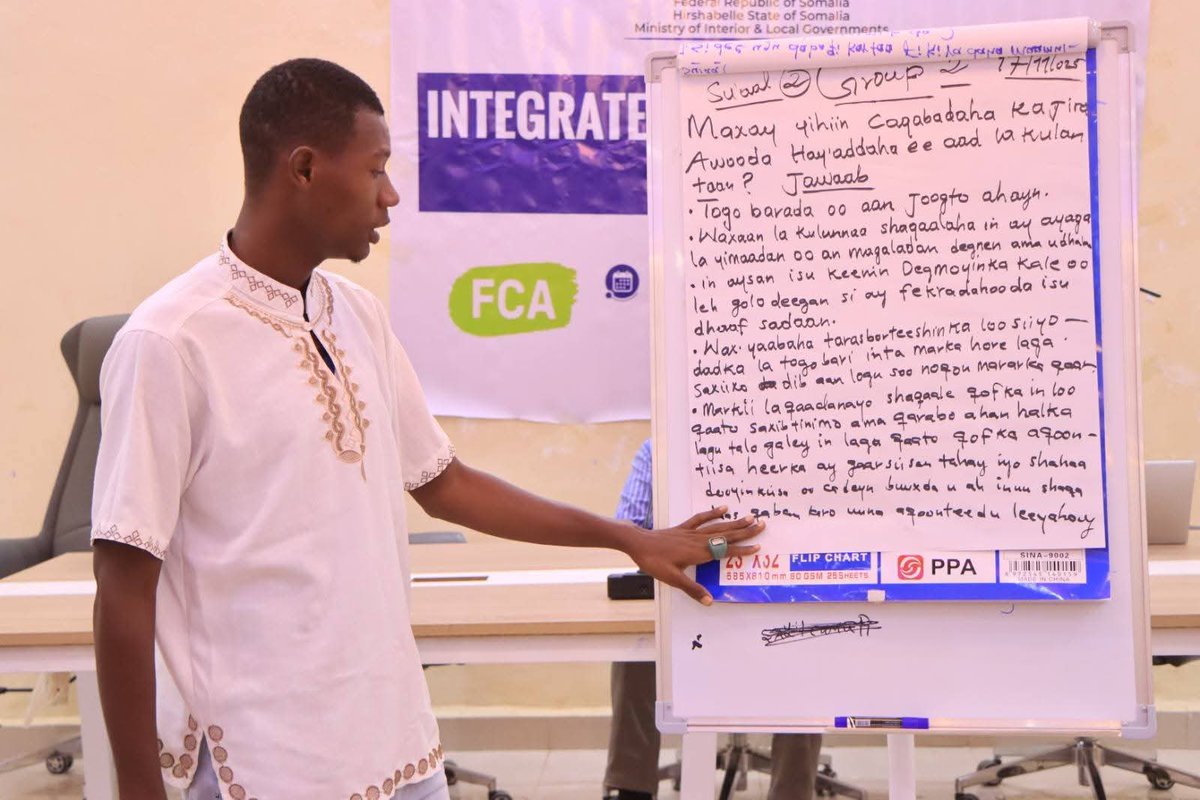 Federal Republic of Somalia
Hirshabelle State of Somalia
Ministry of Interior & Local Governments
INTEGRATE
FCA
Su'aal 2 Group 2 17/11/025
Maxay yihiin Caqabadaha Ka Jira
Awooda Hay'addaha ee aad la Kulan
taan? Jawaab
• Togo barada oo aan Joogto ahayn.
• Waxaan la kulunnaa shaqaalaha in ay ayaga
la yimaadan oo an magaladan degnen ama u dhalan
• in aysan isu keenin Degmoyinka Kale oo
leh golo deegan si ay fekradahooda isu
dhaaf sadaan.
• Wax yaabaha tarasborteeshinka loo siiyo —
dadka la togo bari inta marka hore laga
saxiixo dib aan logu soo noqon mararka qaar
• Markii laqaadanayo shaqaale qofka in loo
qaato saxibtinimo ama qarabo ahan halka
lagu talo galey in laga qaato qofka aqoon-
tiisa heerka ay gaarsiisan tahay iyo shahaa
buuxda u ah inuu shaqa
qaban karo uuna aqoonteedu leeyahay
FLIP CHART
585X810mm 80 GSM 25SHEETS
PPA
SINA-9002
MADE IN CHINA